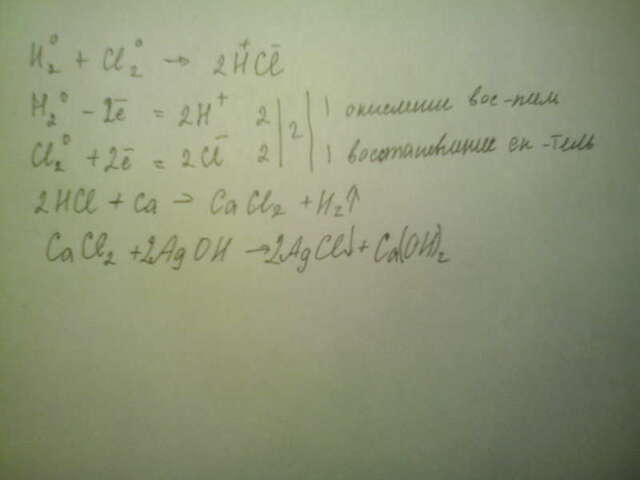 H₂⁰ + Cl₂⁰ → 2H⁺Cl⁻
H₂⁰ - 2ē = 2H⁺ 2 | 2 | 1 окисление вос-тель
Cl₂⁰ + 2ē = 2Cl⁻ 2 | | 1 восстановление ок-тель
2HCl + Ca → CaCl₂ + H₂↑
CaCl₂ + 2AgOH → 2AgCl↓ + Ca(OH)₂